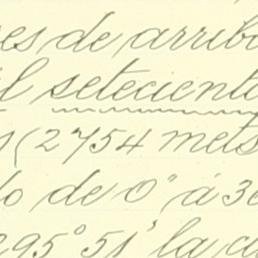 es de arribo
l setecient
s (2754 mets
lo de 0° á 3
295° 51' la ca